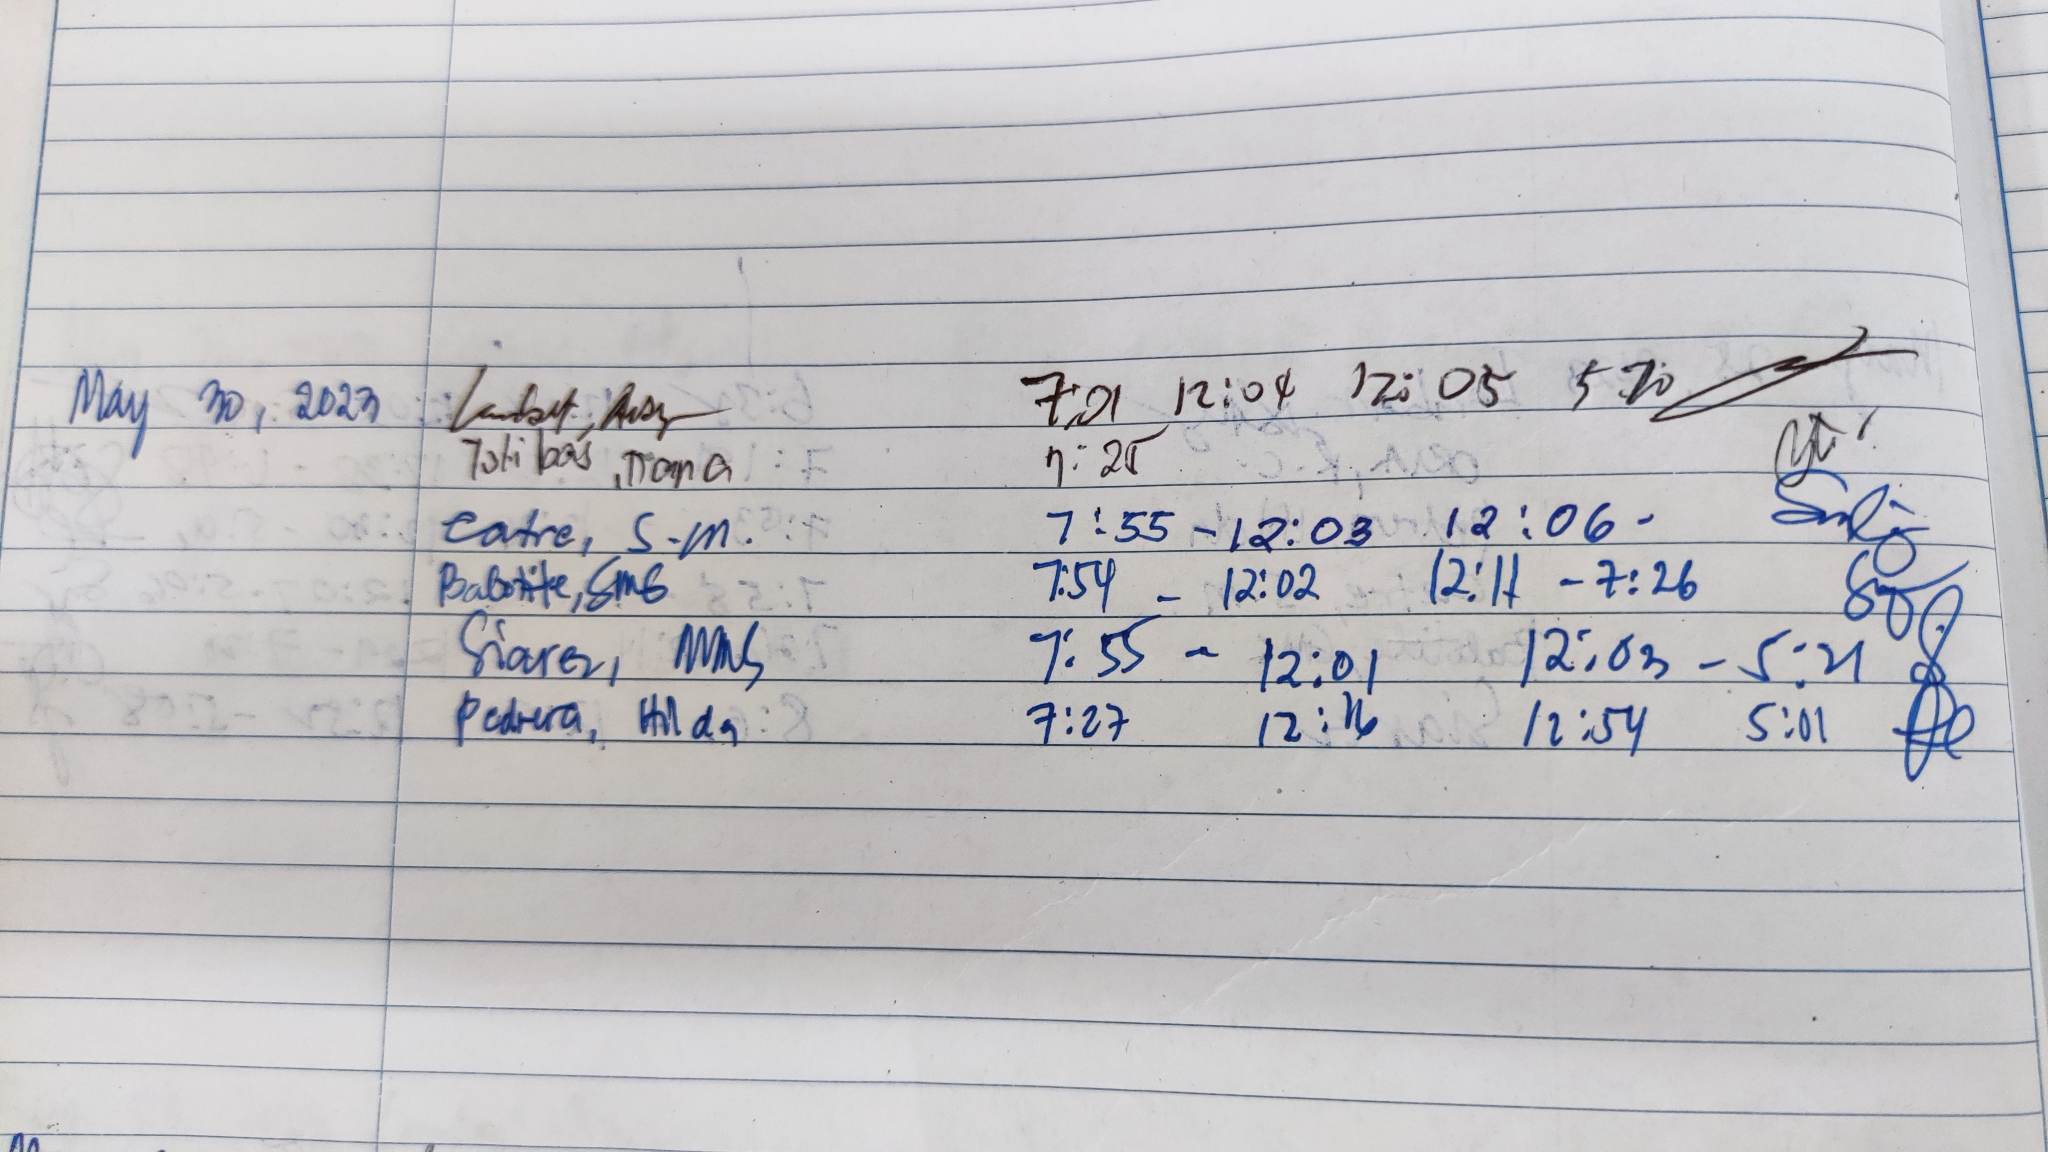 May 30, 2023 7:01 12:04 12:05 5:20
Tolibas, Diana 7:25
Catre, S.M. 7:55 - 12:03 12:06 -
Babotite, SMB 7:54 - 12:02 12:11 - 7:26
Siarez, MMS 7:55 - 12:01 12:03 - 5:21
Pedrera, Hilda 7:27 12:16 12:54 5:01